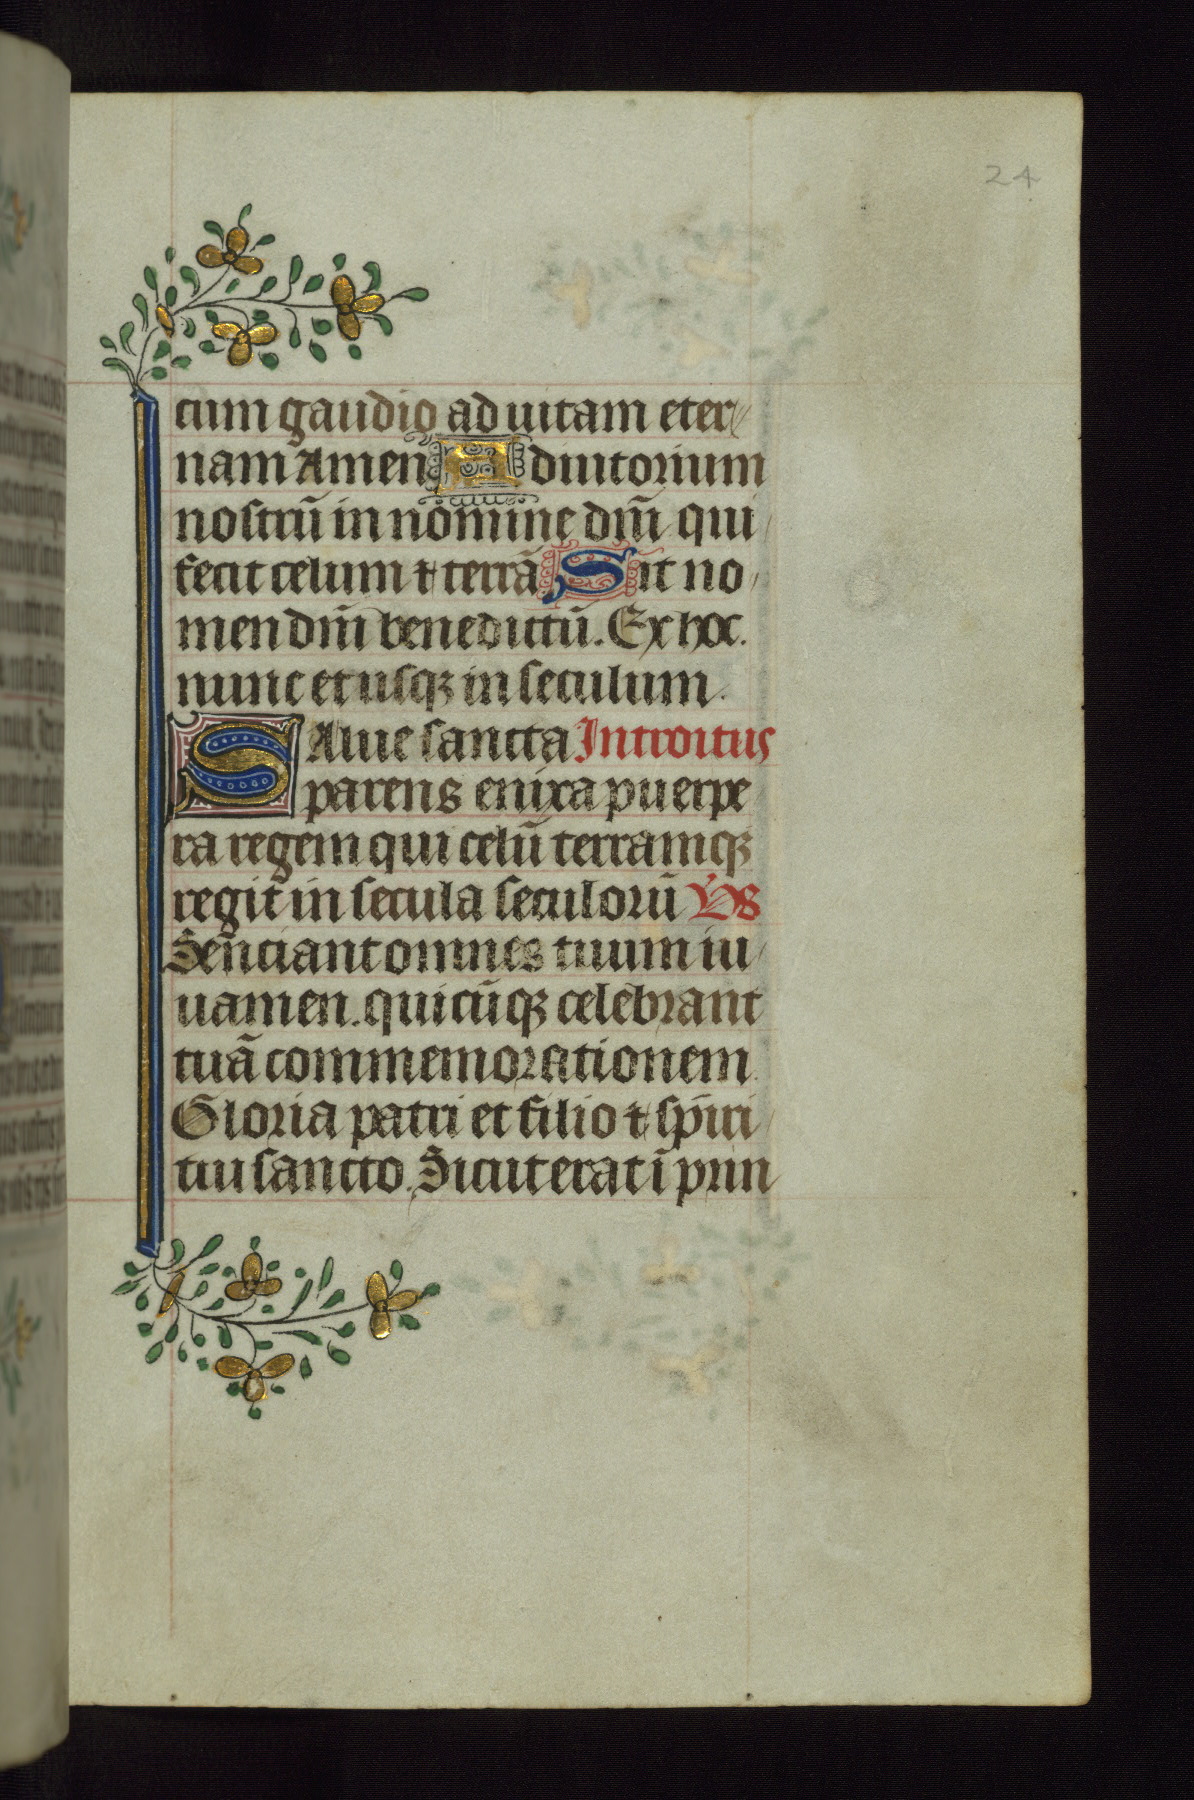 24
cum gaudio ad uitam eter
nam Amen Adiutorium
nostrū in nomine dn̄i qui
fecit celum ⁊ terrā Sit no
men dn̄i benedictū. Ex hoc
nunc et usqꝫ in seculum.
SAlue sancta Introitus
parens enixa puerpe
ra regem qui celū terramqꝫ
regit in secula seculorū Vs
Senciant omnes tuum iu
uamen. quicūqꝫ celebrant
tuā commemorationem
Gloria patri et filio ⁊ sp̄iri
tui sancto. Sicut erat ī prin